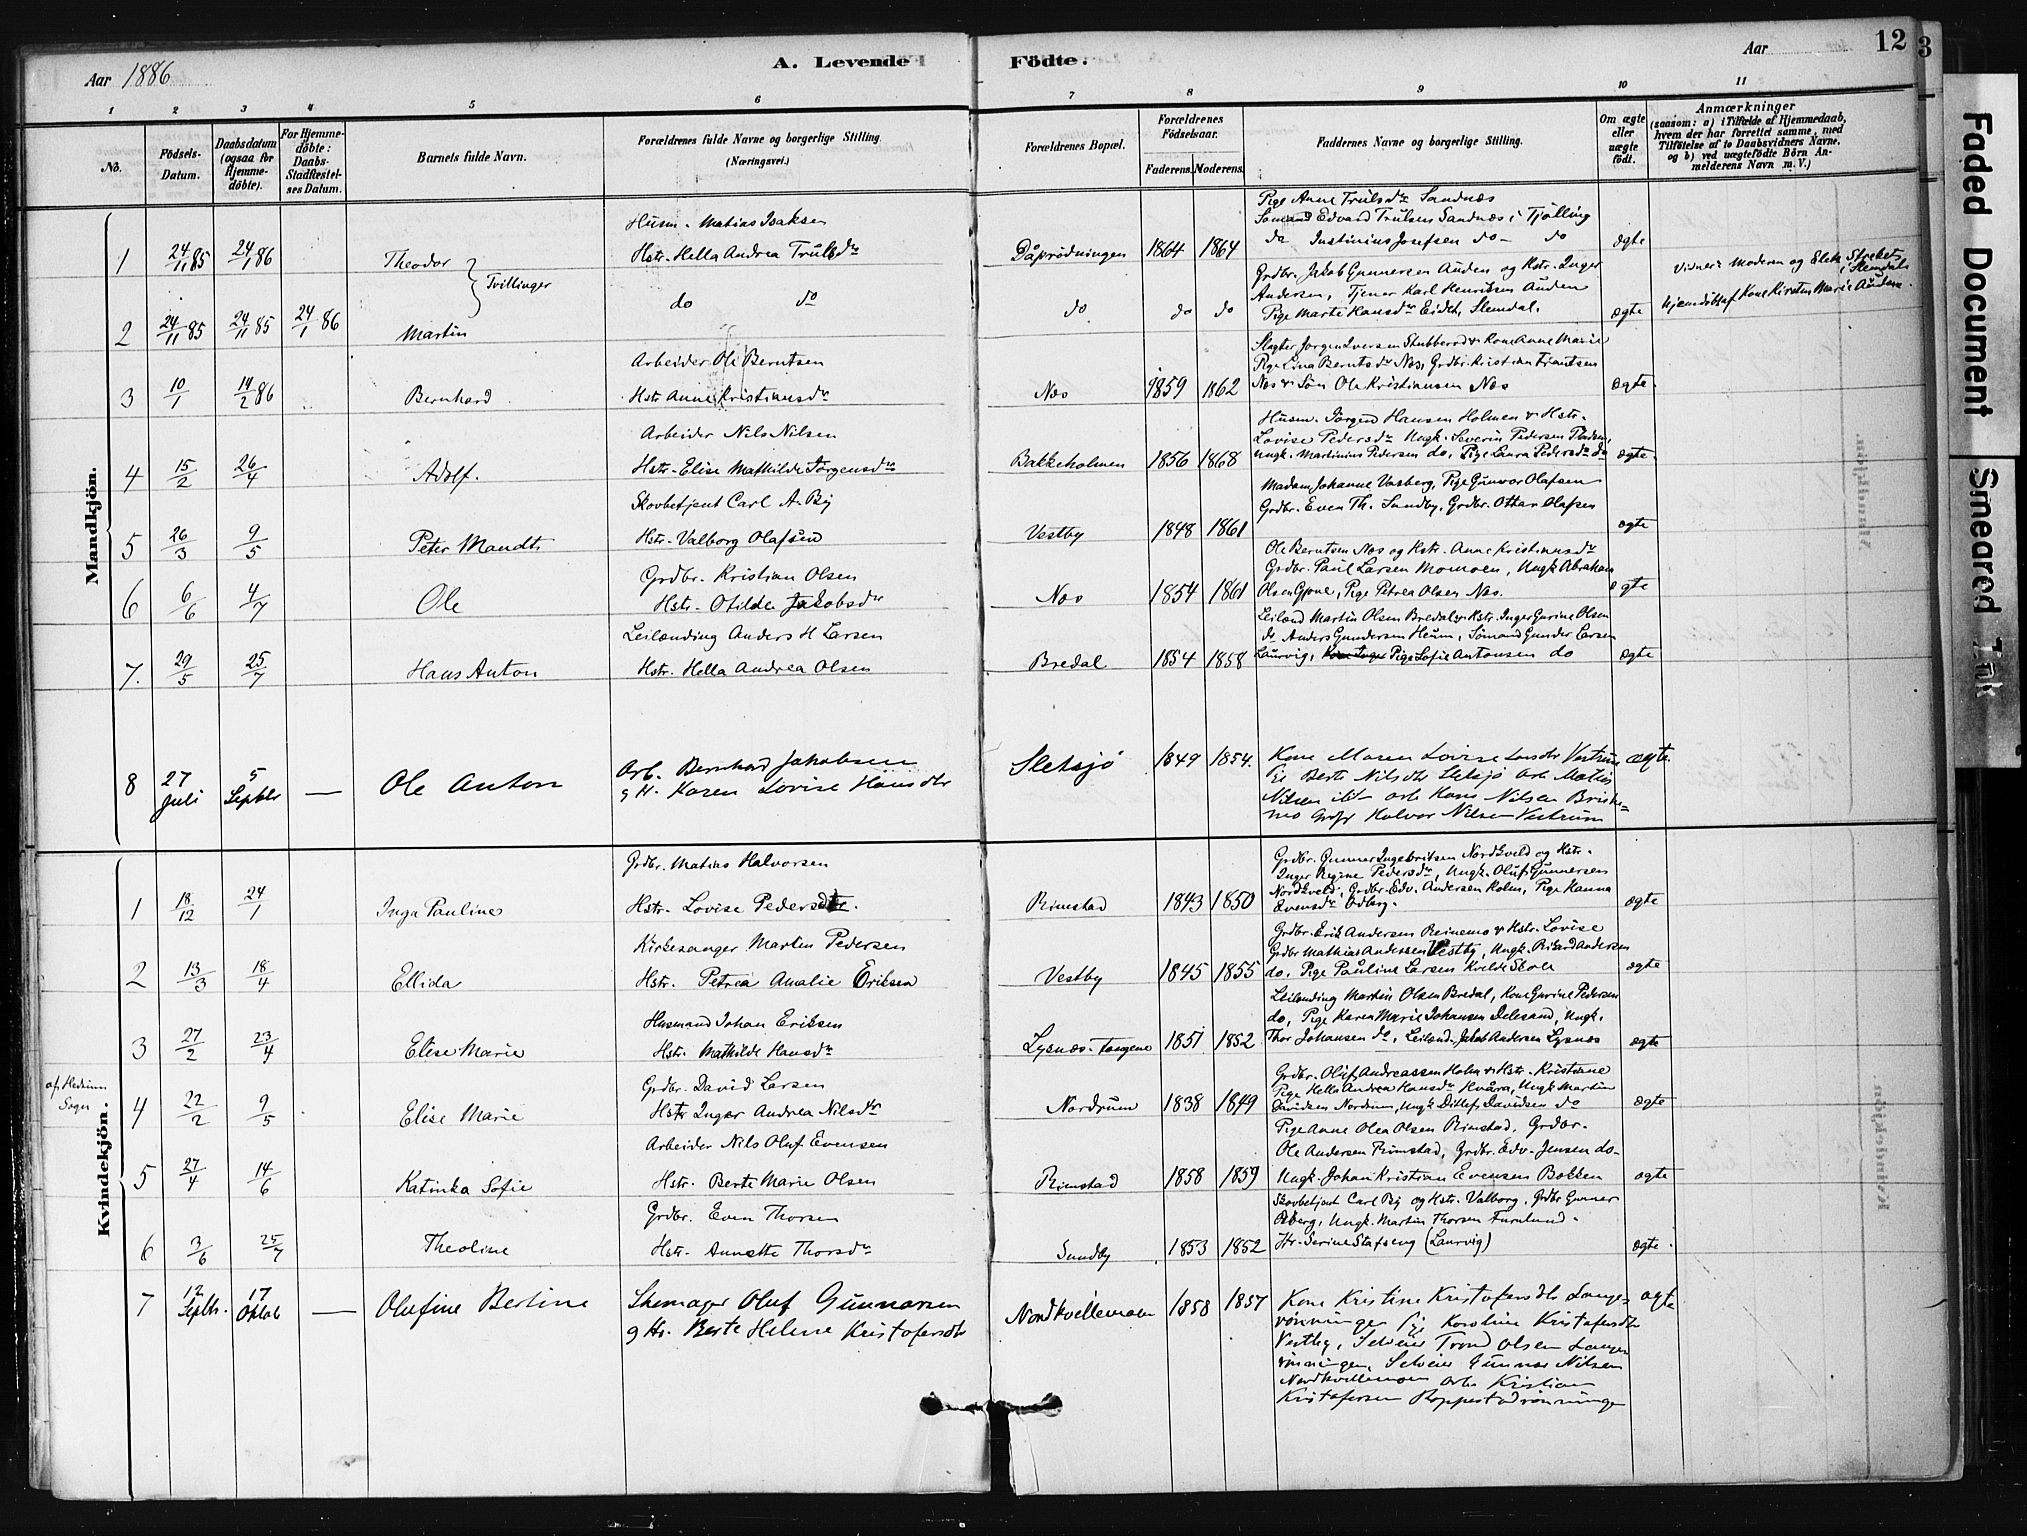 Aar 1886
A. Levende
Födte.
Aar
12
3
Faded Document
Smeared Ink
1 2 3 4 5 6 7 8 9 10 11
No.
Födsels-Datum.
Daabsdatum (ogsaa for Hjemme-döbte).
For Hjemme-döbte: Daabs-Stadfæstel-ses Datum.
Barnets fulde Navn.
Forældrenes fulde Navne og borgerlige Stilling. (Næringsvei.)
Forældrenes Bopæl.
Forældrenes Födselsaar.
Faderens. Moderens.
Faddernes Navne og borgerlige Stilling.
Om ægte eller uægte födt.
Anmærkninger
(saasom: a) i Tilfælde af Hjemmedaab, hvem der har forrettet samme, med Tilföielse af to Daabsvidners Navne, og b) ved uægtefödte Börn An-melderens Navn m. V.)
Mandkjön.
1 24/11 85 24/1 86 Theodor } Tvillinger
Husm. Matias Isaksen
Hstr. Hella Andrea Trulsdr
Dåprødningen 1864 1864
Pige Anne Trulsdr Sandnæs
Sømand Edvard Trulsen Sandnæs i Tjølling
do Justinius Josefsen do - do
ægte
2 24/11 85 24/11 85 24/1 86 Martin
do do
do do do
Grdbr. Jakob Gunnersen Auden og Hstr. Inger
Andersen, Tjener Karl Henriksen Auden
Pige Marte Hansdr Eidet, Slemdal.
ægte
Vidner: Moderen og Elek
i Slemdal
hjemdöbt af Kone Kirsten Marie Auden.
3 10/1 14/2 86 Bernhard
Arbeider Ole Berntsen
Hstr Anne Kristiansdr
Næs 1859 1862
Slagter Jørgen Iversen Stubberød & Kone Anne Marie
Pige Lina Berntsdr Næs, Grdbr. Kristian Frantsen
Næs & Søn Ole Kristiansen Næs
ægte.
4 15/2 26/4 Adolf.
Arbeider Nils Nilsen
Hstr. Elise Mathilde Jørgensdr
Bakkeholmen 1856 1868
Husm. Jørgen Hansen Holmen & Hstr.
Lovise Pedersdr Ungk. Severin Pedersen
Ungk. Martinius Pedersen do, Pige Laura Pedersdr do
ægte.
5 26/3 9/5 Peter Mandt
Skovbetjent Carl A. Bij
Hstr. Valborg Olafsen
Vestby 1848 1861
Madam Johanne Vasberg, Pige Gunvor Olafsen
Grdbr. Even Th. Sundby, Grdbr. Ottar Olafsen
ægte
6 6/6 4/7 Ole
Grdbr. Kristian Olsen
Hstr. Otilde Jakobsdr
Næs 1854 1861
Ole Berntsen Næs og Hstr. Anne Kristiansdr
Grdbr. Paul Larsen Momoen, Ungk Abraham
Olsen Gjone, Pige Petrea Olsen Næs.
ægte
7. 29/5 25/7 Hans Anton
Leilænding Anders H Larsen
Hstr. Hella Andrea Olsen
Bredal 1854 1858
Leilænd Martin Olsen Bredal & Hstr. Inger Gurine Olsen
do, Anders Gundersen Heum, Sømand Gunder Larsen
Laurvig, Pige Sofie Antonsen do
ægte
8 27 Juli 5 Septbr — Ole Anton
Arb. Bernhard Jakobsen
g H. Karen Lovise Hansdtr
Sletsjø 1849 1854.
Kone Maren Lovise Larsdtr Vestrum
Pi Berte Nilsdtr Sletsjø Arb Mathis
Nilsen ibt Arb Hans Nilsen Briske=
mo Grdbr Halvor Nilsen Vestrum
ægte.
Kvindekjön.
1 18/12 24/1 Inga Pauline
Grdbr. Matias Halvorsen
Hstr. Lovise Pedersdtr.
Rimstad 1843 1850
Grdbr. Gunner Ingebritsen Nordkveld og Hstr.
Inger Regine Pedersdr, Ungk. Oluf Gunnersen
Nordkveld, Grdbr. Edv. Andersen Holm, Pige Hanna
Evensdr Odberg.
ægte
2 13/3 18/4 Ellida
Kirkesanger Martin Pedersen
Hstr. Petrea Amalie Eriksen
Vestby 1845 1855
Grdbr. Erik Andersen Reinemo & Hstr. Lovise
Grdbr Mathias Andersen Vestby, Ungk. Rikard Andersen
do, Pige Pauline Larsen Kvelde Skole
ægte
3 27/2 23/4 Elise Marie
Husmand Johan Eriksen
Hstr. Mathilde Hansdr
Lysnæs-tangene 1851 1852
Leilænding Martin Olsen Bredal, Kone Gurine Pedersen
do, Pige Karen Marie Johansen Delesand, Ungk.
Thor Johansen do, Leilænd. Jakob Andersen Lysnæs
ægte
af Hedrum Sogn
4 22/2 9/5 Elise Marie
Grdbr. David Larsen
Hstr Inger Andrea Nilsdtr
Nordrum 1838 1849
Grdbr. Oluf Andreassen Holm & Hstr. Kristiane
Pige Hella Andrea Hansdr Kvåra, Ungk Martin
Davidsen Nordrum, Ungk. Ditlef Davidsen do
ægte
5 27/4 14/6 Katinka Sofie
Arbeider Nils Oluf Evensen
Hstr. Berte Marie Olsen
Rimstad 1858 1859
Pige Anne Olea Olsen Rimstad, Grdbr.
Ole Andersen Rimstad, Grdbr. Edv. Jensen do-
Ungk. Johan Kristian Evensen Bakken
ægte
6 3/6 25/7 Theoline
Grdbr. Even Thorsen
Hstr. Annette Thorsdr
Sundby 1853 1852
Skovbetjent Carl Bij og Hstr. Valborg, Grdbr Gunner
Odberg, Ungk. Martin Thorsen Furulund.
Fr. Serine Stafseng (Laurvig)
ægte.
7 12 Septbr. 17 Oktob — Olufine Bertine
Skomager Oluf Gunnarsen
g Hr. Berte Helene Kristofersdtr
Nordkvellemoen 1858 1857
Kone Kristine Kristofersdtr Lange-
rønningen Pige Karoline Kristofersdtr
Vestby, Selveier Trond Olsen Lange
rønningen, Selveier Gunnar Nilsen
Nordkvellemoen Arb Kristian
Kristofersen Roppestadrønningen
ægte